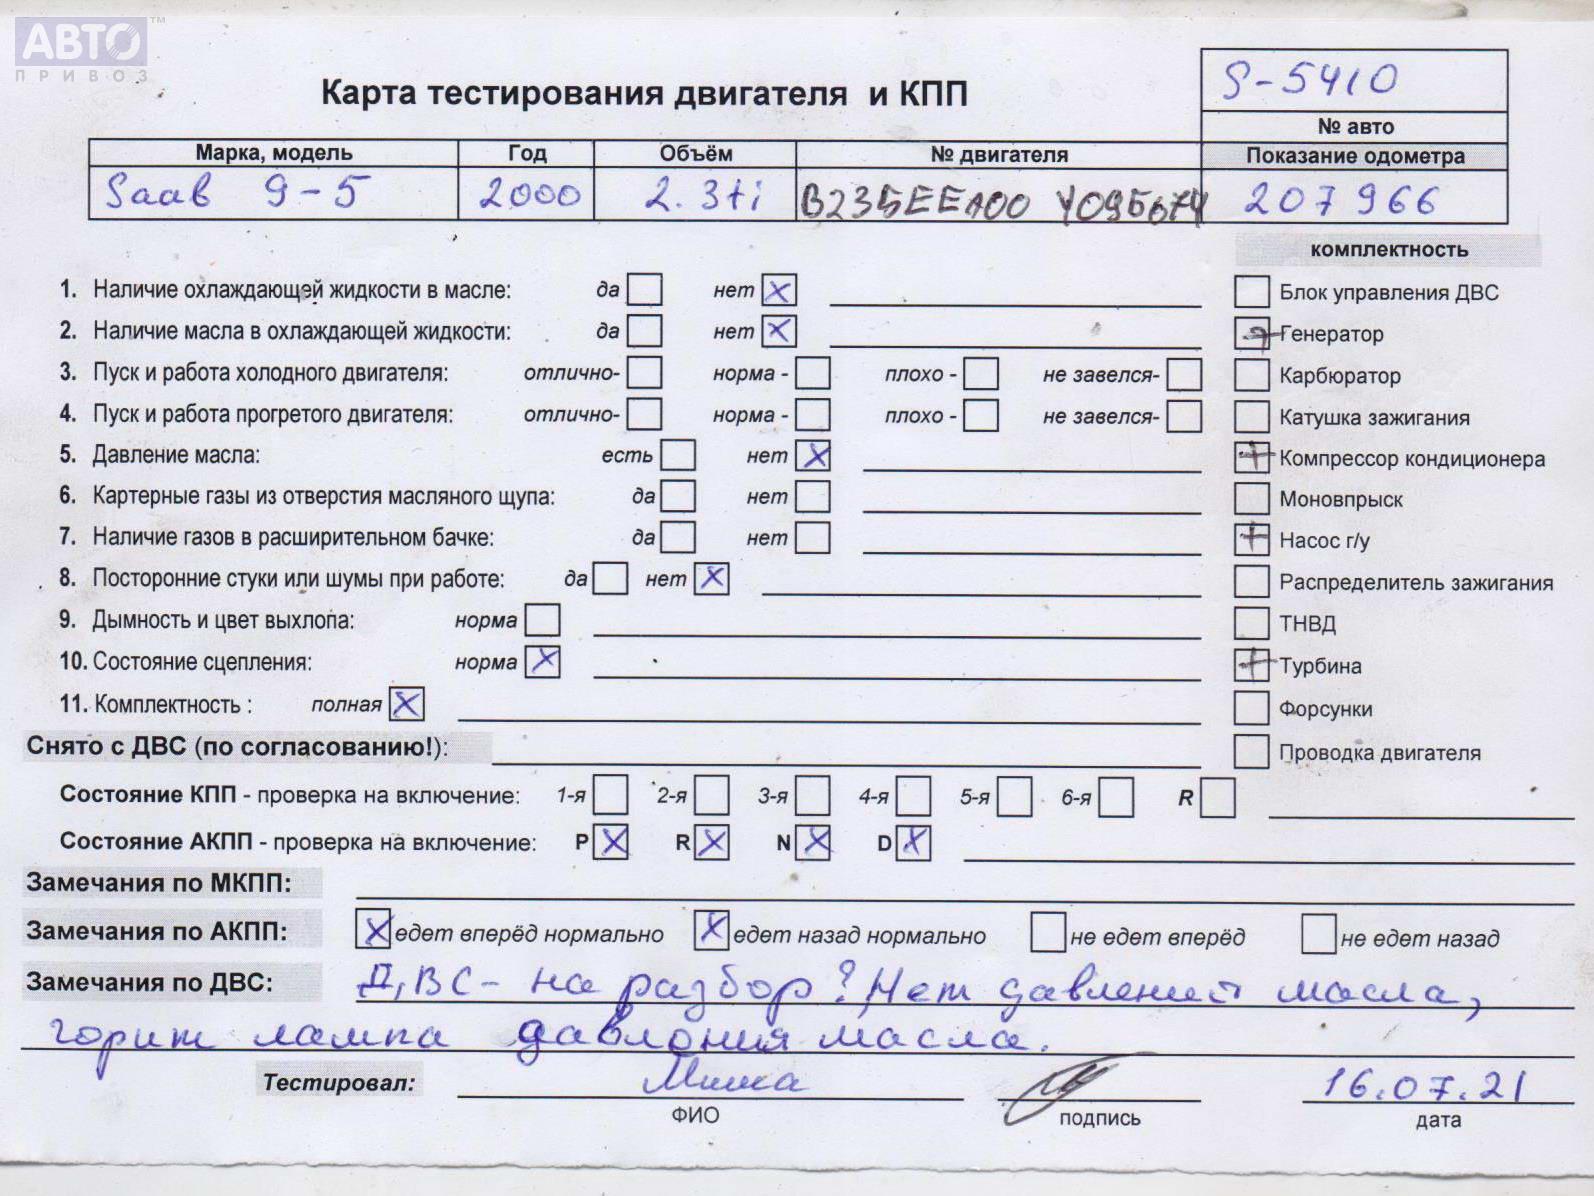 АВТО™
ПРИВОЗ
S-5410
Карта тестирования двигателя и КПП
№ авто
Марка, модель Год Объём № двигателя Показание одометра
Saab 9-5 2000 2.3ti B235EEA00 Y095674 207 966
комплектность
1. Наличие охлаждающей жидкости в масле: да нет X
Блок управления ДВС
2. Наличие масла в охлаждающей жидкости: да нет X
+ Генератор
3. Пуск и работа холодного двигателя: отлично- норма - плохо - не завелся-
Карбюратор
4. Пуск и работа прогретого двигателя: отлично- норма - плохо - не завелся-
Катушка зажигания
5. Давление масла: есть нет X
+ Компрессор кондиционера
6. Картерные газы из отверстия масляного щупа: да нет
Моновпрыск
7. Наличие газов в расширительном бачке: да нет
+ Насос г/у
8. Посторонние стуки или шумы при работе: да нет X
Распределитель зажигания
9. Дымность и цвет выхлопа: норма
ТНВД
10. Состояние сцепления: норма X
+ Турбина
11. Комплектность : полная X
Форсунки
Снято с ДВС (по согласованию!):
Проводка двигателя
Состояние КПП - проверка на включение: 1-я 2-я 3-я 4-я 5-я 6-я R
Состояние АКПП - проверка на включение: P X R X N X D X
Замечания по МКПП:
Замечания по АКПП: X едет вперёд нормально X едет назад нормально не едет вперёд не едет назад
Замечания по ДВС: ДВС - на разбор? Нет давления масла,
горит лампа давления масла.
Тестировал: Миша 16.07.21
ФИО подпись дата